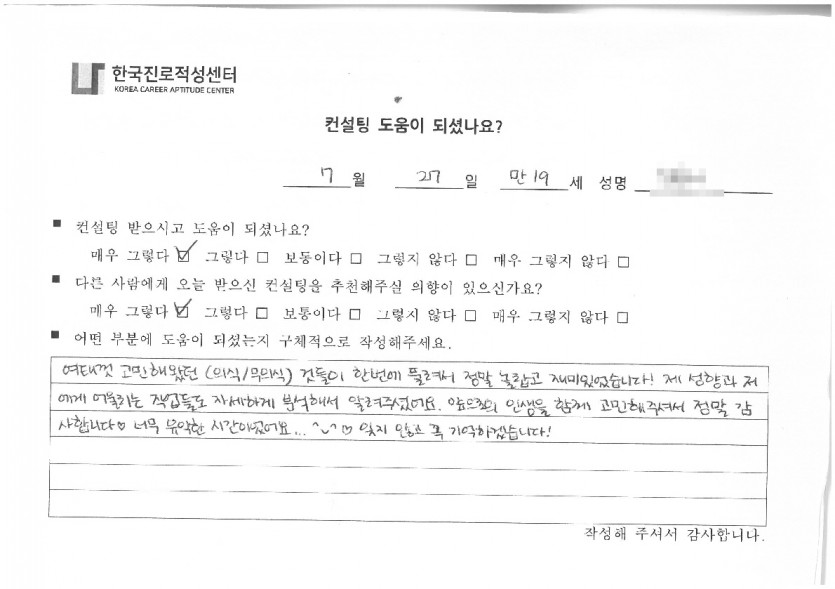 한국진로적성센터
KOREA CAREER APTITUDE CENTER
컨설팅 도움이 되셨나요?
7 월 27 일 만 19 세 성명
■ 컨설팅 받으시고 도움이 되셨나요?
매우 그렇다 ☑ 그렇다 □ 보통이다 □ 그렇지 않다 □ 매우 그렇지 않다 □
■ 다른 사람에게 오늘 받으신 컨설팅을 추천해주실 의향이 있으신가요?
매우 그렇다 ☑ 그렇다 □ 보통이다 □ 그렇지 않다 □ 매우 그렇지 않다 □
■ 어떤 부분에 도움이 되셨는지 구체적으로 작성해주세요.
여태껏 고민해왔던 (의식/무의식) 것들이 한번에 풀려서 정말 놀랍고 재미있었습니다! 제 성향과 저
에게 어울리는 직업들도 자세하게 분석해서 알려주셨어요. 앞으로의 인생을 함께 고민해주셔서 정말 감
사합니다♡ 너무 유익한 시간이었어요... ^◡^♡ 잊지 않고 꼭 기억하겠습니다!
작성해 주셔서 감사합니다.